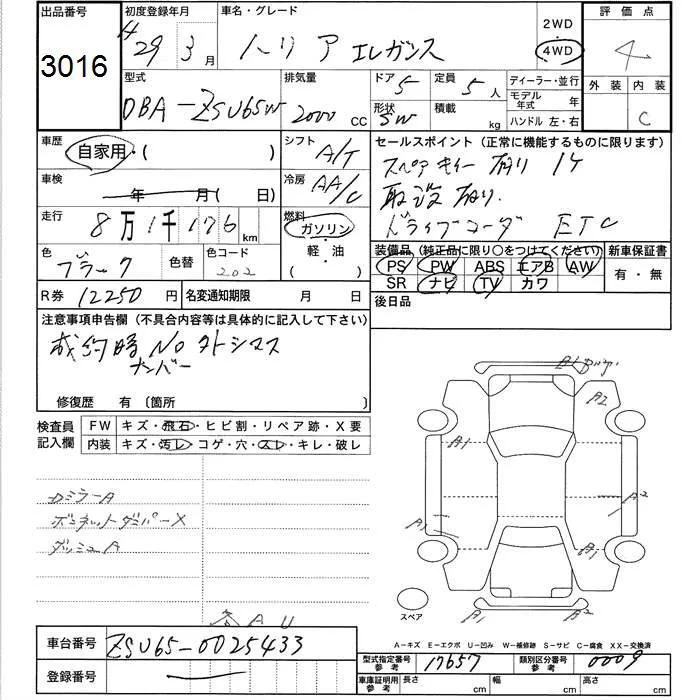 出品番号 初度登録年月 車名・グレード 2WD 評価点
3016 H29 3月 ハリア エレガンス 4WD 4
型式 排気量 ドア 5 定員 5人 ディーラー・並行 外装 内装
DBA-ZSU65W 2000 CC 形状 SW 積載 kg モデル年式 年 C
ハンドル 左・右
車歴 自家用・( ) シフト A/T セールスポイント(正常に機能するものに限ります)
車検 年 月( 日) 冷房 AA/C スペアキィー 有り 1ケ
取説 有り.
走行 8万1千176km 燃料 ガソリン・軽・油・( ) ドライブコーダ ETC
色 ブラック 色替 色コード 202 装備品(純正品に限り○をつけてください) 新車保証書
PS PW ABS エアB AW 有・無
SR ナビ TV カワ
R券 12250円 名変通知期限 月 日 後日品
注意事項申告欄(不具合内容等は具体的に記入して下さい)
成約時 No ハトシマス
ナンバー
修復歴 有〔箇所 〕
検査員記入欄 FW キズ・飛石・ヒビ割・リペア跡・X要
内装 キズ・汚レ・コゲ・穴・スレ・キレ・破レ
A2
A1
A1 A2
A1
A1
ロミラーA
ボンネットダンパーX
ダッシュA
各AU
スペア
車台番号 ZSU65-0025433
A−キズ E−エクボ U−凹み W−補修跡 S−サビ C−腐食 XX−交換済
登録番号
型式指定番号参考 17657 類別区分番号参考 0009
車庫証明用参考 長さ cm 幅 cm 高さ cm